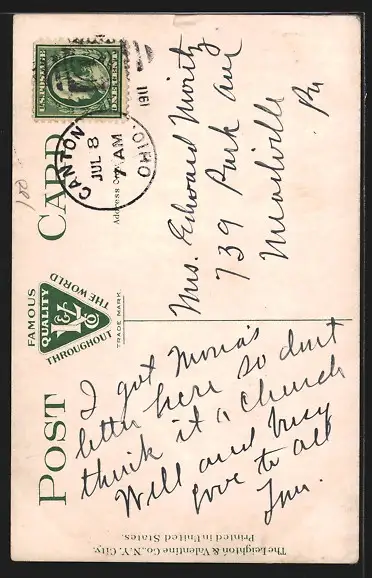 POST CARD
FAMOUS
QUALITY
L&V Co
THROUGHOUT
THE WORLD
TRADE MARK
U.S. POSTAGE
ONE CENT
CANTON, OHIO.
JUL 8
7 AM
1911
100
Address
Mrs. Edward Moritz
739 Park Ave
Meadville
Pa
I got Mona's
letter here so dont
think it a church
Well and busy
love to all
The Leighton & Valentine Co., N.Y. City.
Printed in United States.